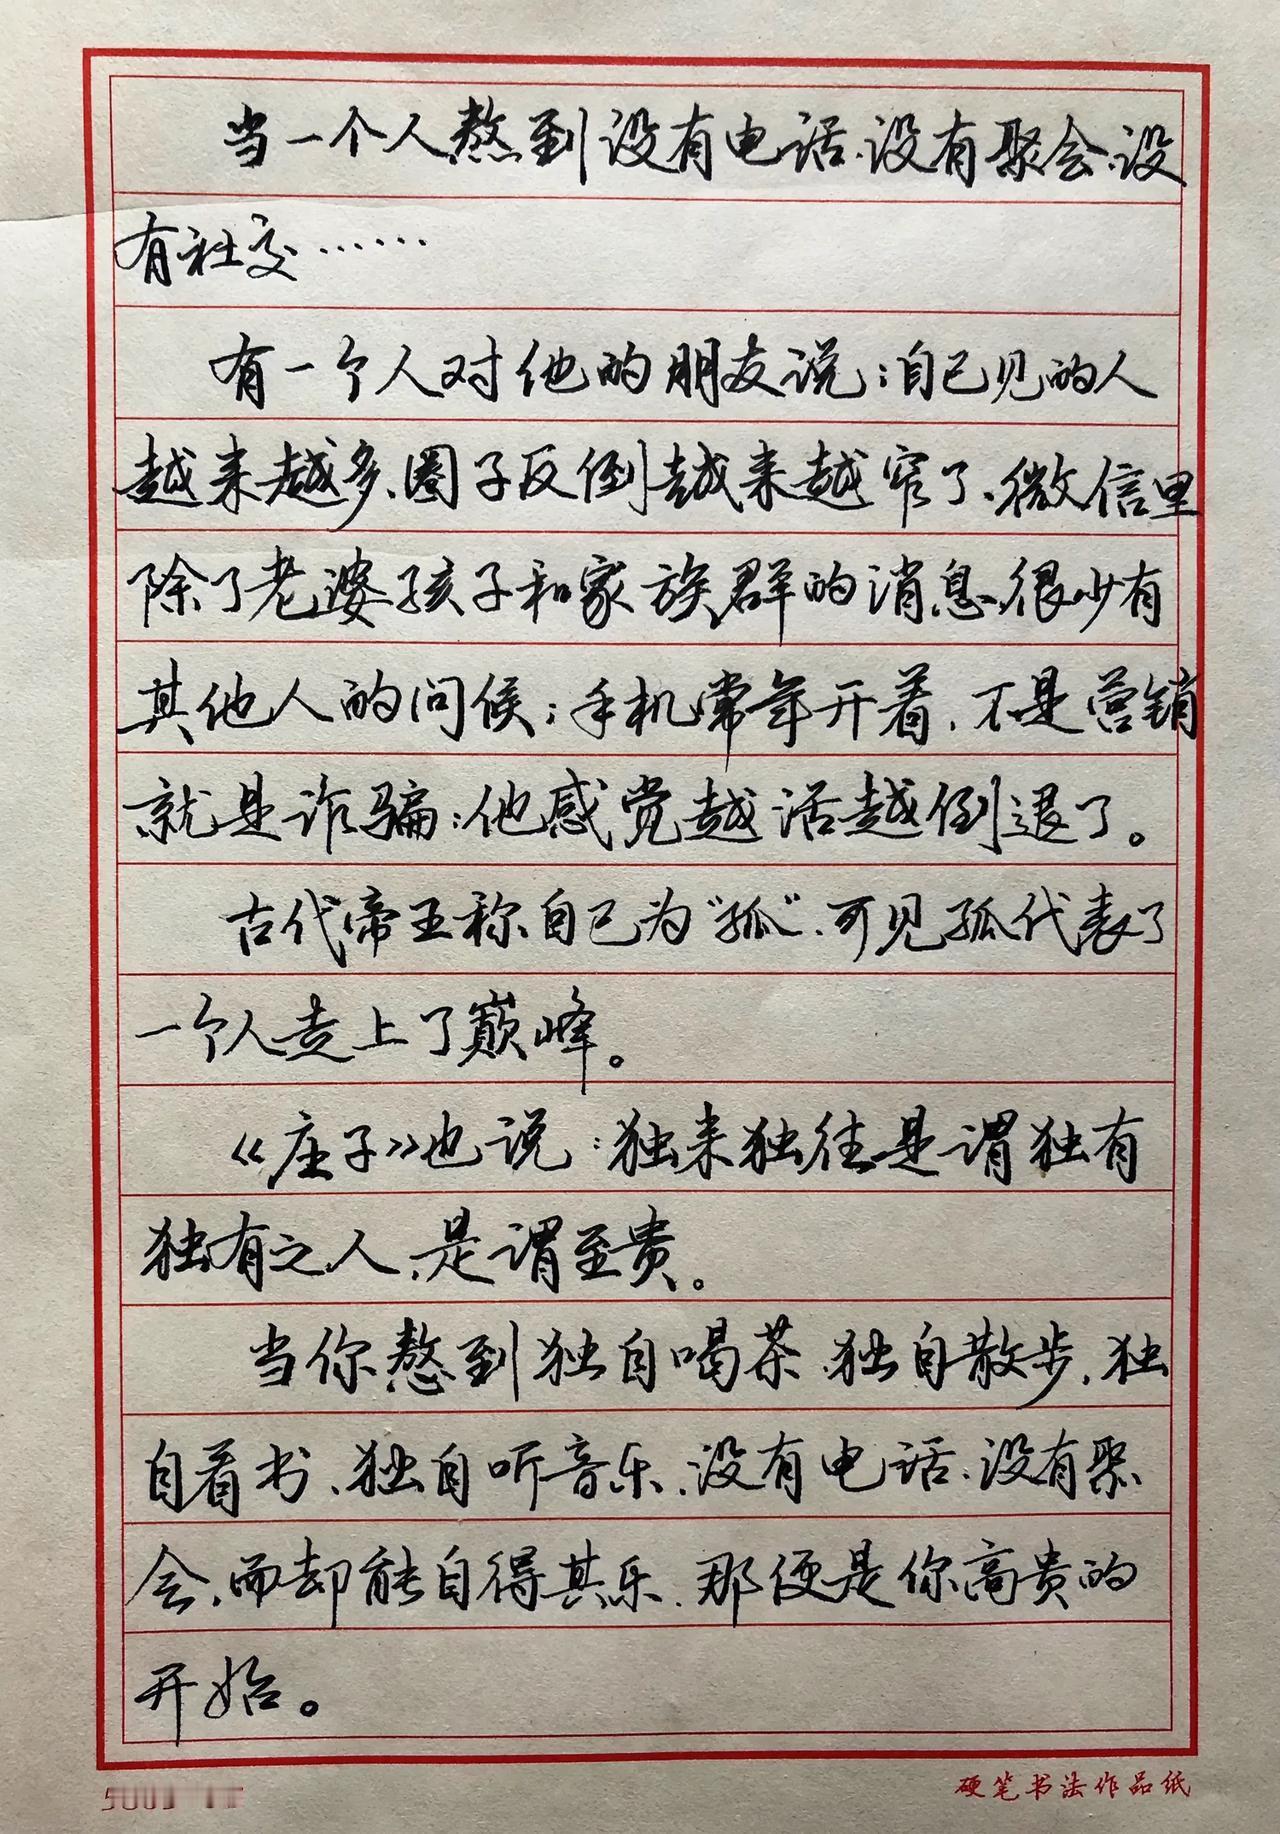 当一个人熬到没有电话、没有聚会、没
有社交……
有一个人对他的朋友说：自己见的人
越来越多、圈子反倒越来越窄了、微信里
除了老婆孩子和家族群的消息、很少有
其他人的问候；手机常年开着、不是营销
就是诈骗；他感觉越活越倒退了。
古代帝王称自己为“孤”、可见孤代表了
一个人走上了巅峰。
《庄子》也说：独来独往是谓独有
独有之人、是谓至贵。
当你熬到独自喝茶、独自散步、独
自看书、独自听音乐、没有电话、没有聚
会、而却能自得其乐、那便是你高贵的
开始。
硬笔书法作品纸